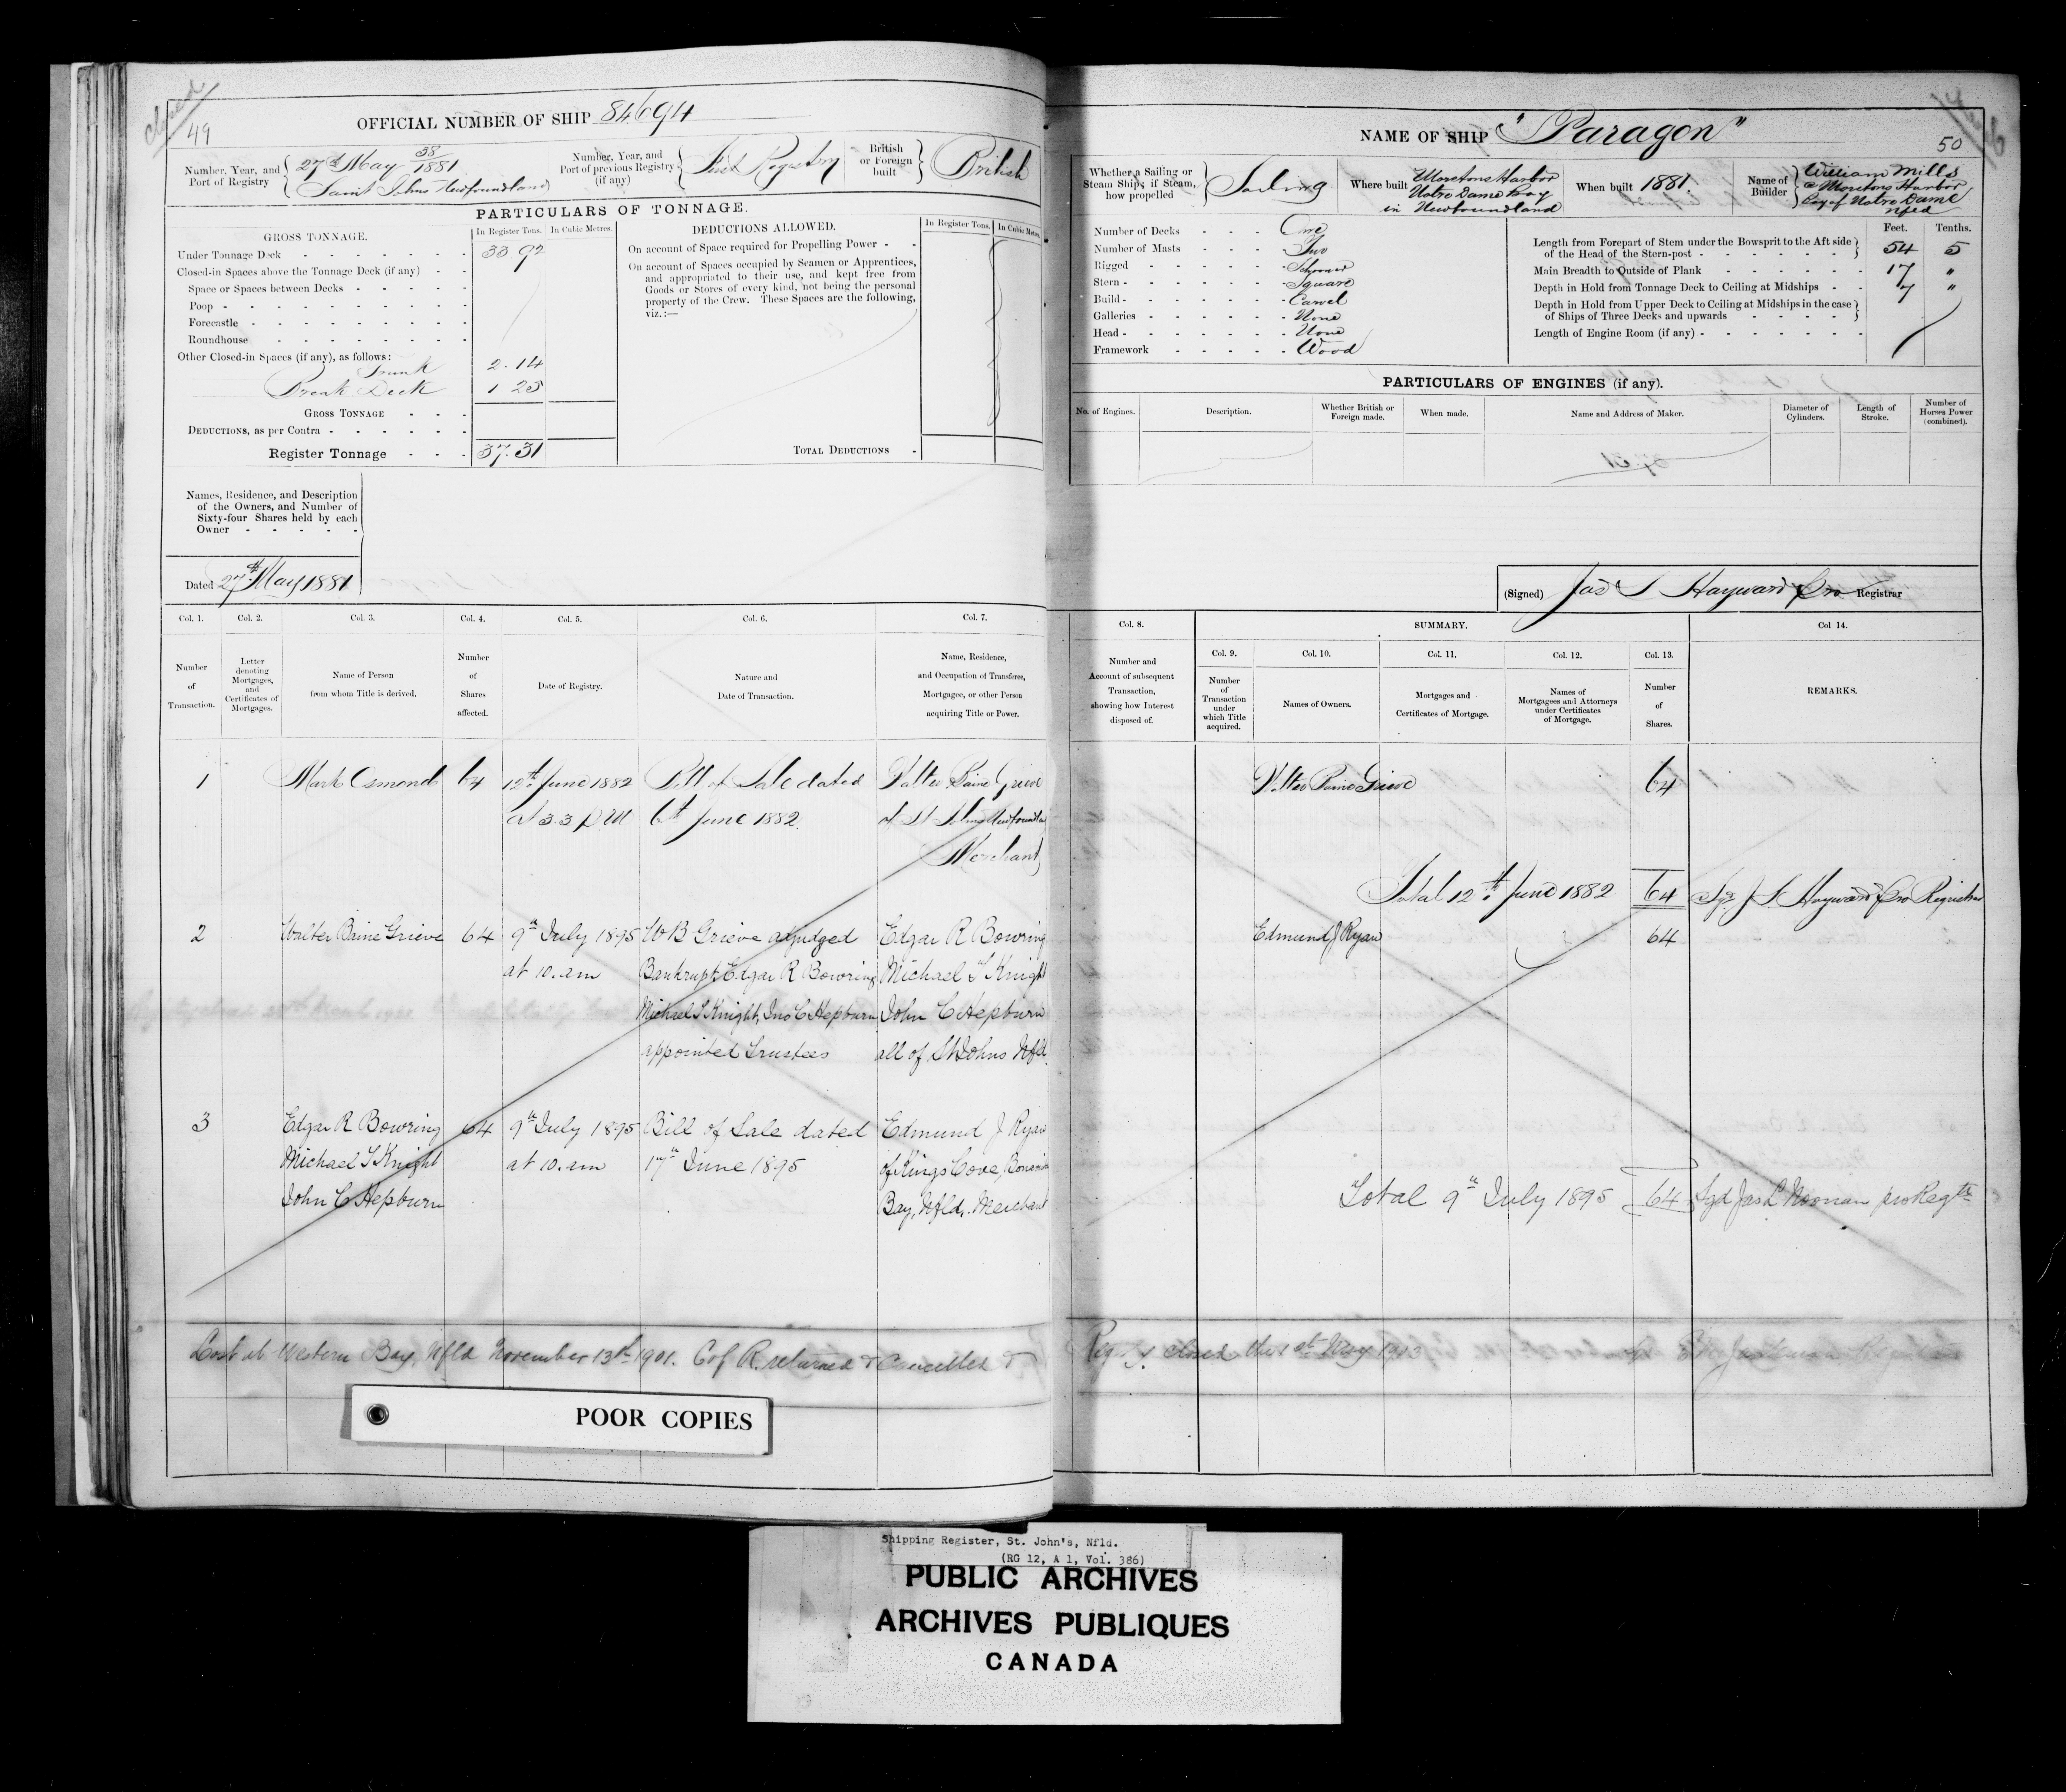 closed
49
OFFICIAL NUMBER OF SHIP 84694
Number, Year, and Port of Registry { 27th May 38/1881
Saint Johns Newfoundland
Number, Year, and Port of previous Registry (if any) { First Registry
British or Foreign built } British
PARTICULARS OF TONNAGE.
GROSS TONNAGE.
In Register Tons.
In Cubic Metres.
Under Tonnage Deck 33.92
Closed-in Spaces above the Tonnage Deck (if any)
Space or Spaces between Decks
Poop
Forecastle
Roundhouse
Other Closed-in Spaces (if any), as follows:
Trunk 2.14
Break Deck 1.25
GROSS TONNAGE
DEDUCTIONS, as per Contra
Register Tonnage 37.31
DEDUCTIONS ALLOWED.
In Register Tons.
In Cubic Metres.
On account of Space required for Propelling Power
On account of Spaces occupied by Seamen or Apprentices,
and appropriated to their use, and kept free from
Goods or Stores of every kind, not being the personal
property of the Crew. These Spaces are the following,
viz.:—
TOTAL DEDUCTIONS
Names, Residence, and Description
of the Owners, and Number of
Sixty-four Shares held by each
Owner
Dated 27th May 1881
Col. 1.
Number of Transaction.
Col. 2.
Letter denoting Mortgages, and Certificates of Mortgages.
Col. 3.
Name of Person from whom Title is derived.
Col. 4.
Number of Shares affected.
Col. 5.
Date of Registry.
Col. 6.
Nature and Date of Transaction.
Col. 7.
Name, Residence, and Occupation of Transferee, Mortgagee, or other Person acquiring Title or Power.
1 Mark Osmond 64 12th June 1882 Bill of Sale dated Walter Baine Grieve
at 3.3 P.M 6th June 1882 of St Johns Newfoundland
Merchant
2 Walter Baine Grieve 64 9th July 1895 W B Grieve adjudged Edgar R Bowring
at 10. am Bankrupt, Edgar R Bowring Michael T Knight
Michael T Knight, Jno C Hepburn John C Hepburn
appointed Trustees all of St Johns Nfld
3 Edgar R Bowring 64 9th July 1895 Bill of Sale dated Edmund J Ryan
Michael T Knight at 10. am 17th June 1895 of Kings Cove, Bonavista
John C Hepburn Bay, Nfld,. Merchant
Lost at Western Bay, Nfld November 13th 1901. C of R. returned & Cancelled &
POOR COPIES
NAME OF SHIP "Paragon"
50
Whether a Sailing or Steam Ship; if Steam, how propelled } Sailing
Where built { Moretons Harbor
Notre Dame Bay
in Newfoundland
When built 1881.
Name of Builder { William Mills
Moretons Harbor
Bay of Notre Dame
Nfld
Number of Decks One
Number of Masts Two
Rigged Schooner
Stern Square
Build Carvel
Galleries None
Head None
Framework Wood
Feet. Tenths.
Length from Forepart of Stem under the Bowsprit to the Aft side
of the Head of the Stern-post 54 5
Main Breadth to Outside of Plank 17 "
Depth in Hold from Tonnage Deck to Ceiling at Midships 7 "
Depth in Hold from Upper Deck to Ceiling at Midships in the case
of Ships of Three Decks and upwards
Length of Engine Room (if any)
PARTICULARS OF ENGINES (if any).
No. of Engines.
Description.
Whether British or Foreign made.
When made.
Name and Address of Maker.
Diameter of Cylinders.
Length of Stroke.
Number of Horses Power (combined).
(Signed) Jas S Hayward Pro Registrar
Col. 8.
Number and Account of subsequent Transaction, showing how Interest disposed of.
SUMMARY.
Col. 9.
Number of Transaction under which Title acquired.
Col. 10.
Names of Owners.
Col. 11.
Mortgages and Certificates of Mortgage.
Col. 12.
Names of Mortgagees and Attorneys under Certificates of Mortgage.
Col. 13.
Number of Shares.
Col 14.
REMARKS.
Walter Baine Grieve 64
Total 12th June 1882 64 Sgd J S Hayward Pro Registrar
Edmund J Ryan 64
Total 9th July 1895 64 Sgd Jas L Noonan pro Regtr
Regy. closed this May 1913
Shipping Register, St. John's, Nfld.
(RG 12, A 1, Vol. 386)
PUBLIC ARCHIVES
ARCHIVES PUBLIQUES
CANADA